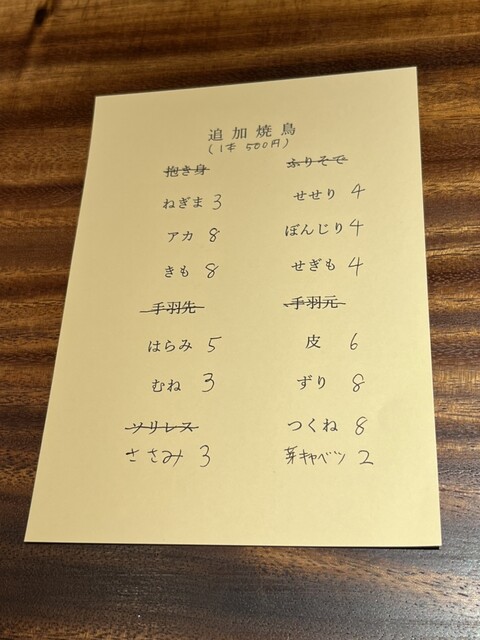 追加焼鳥
(1本 500円)
抱き身 ふりそで
ねぎま 3 せせり 4
アカ 8 ぼんじり 4
きも 8 せぎも 4
手羽先 手羽元
はらみ 5 皮 6
むね 3 ずり 8
ソリレス つくね 8
ささみ 3 芽キャベツ 2